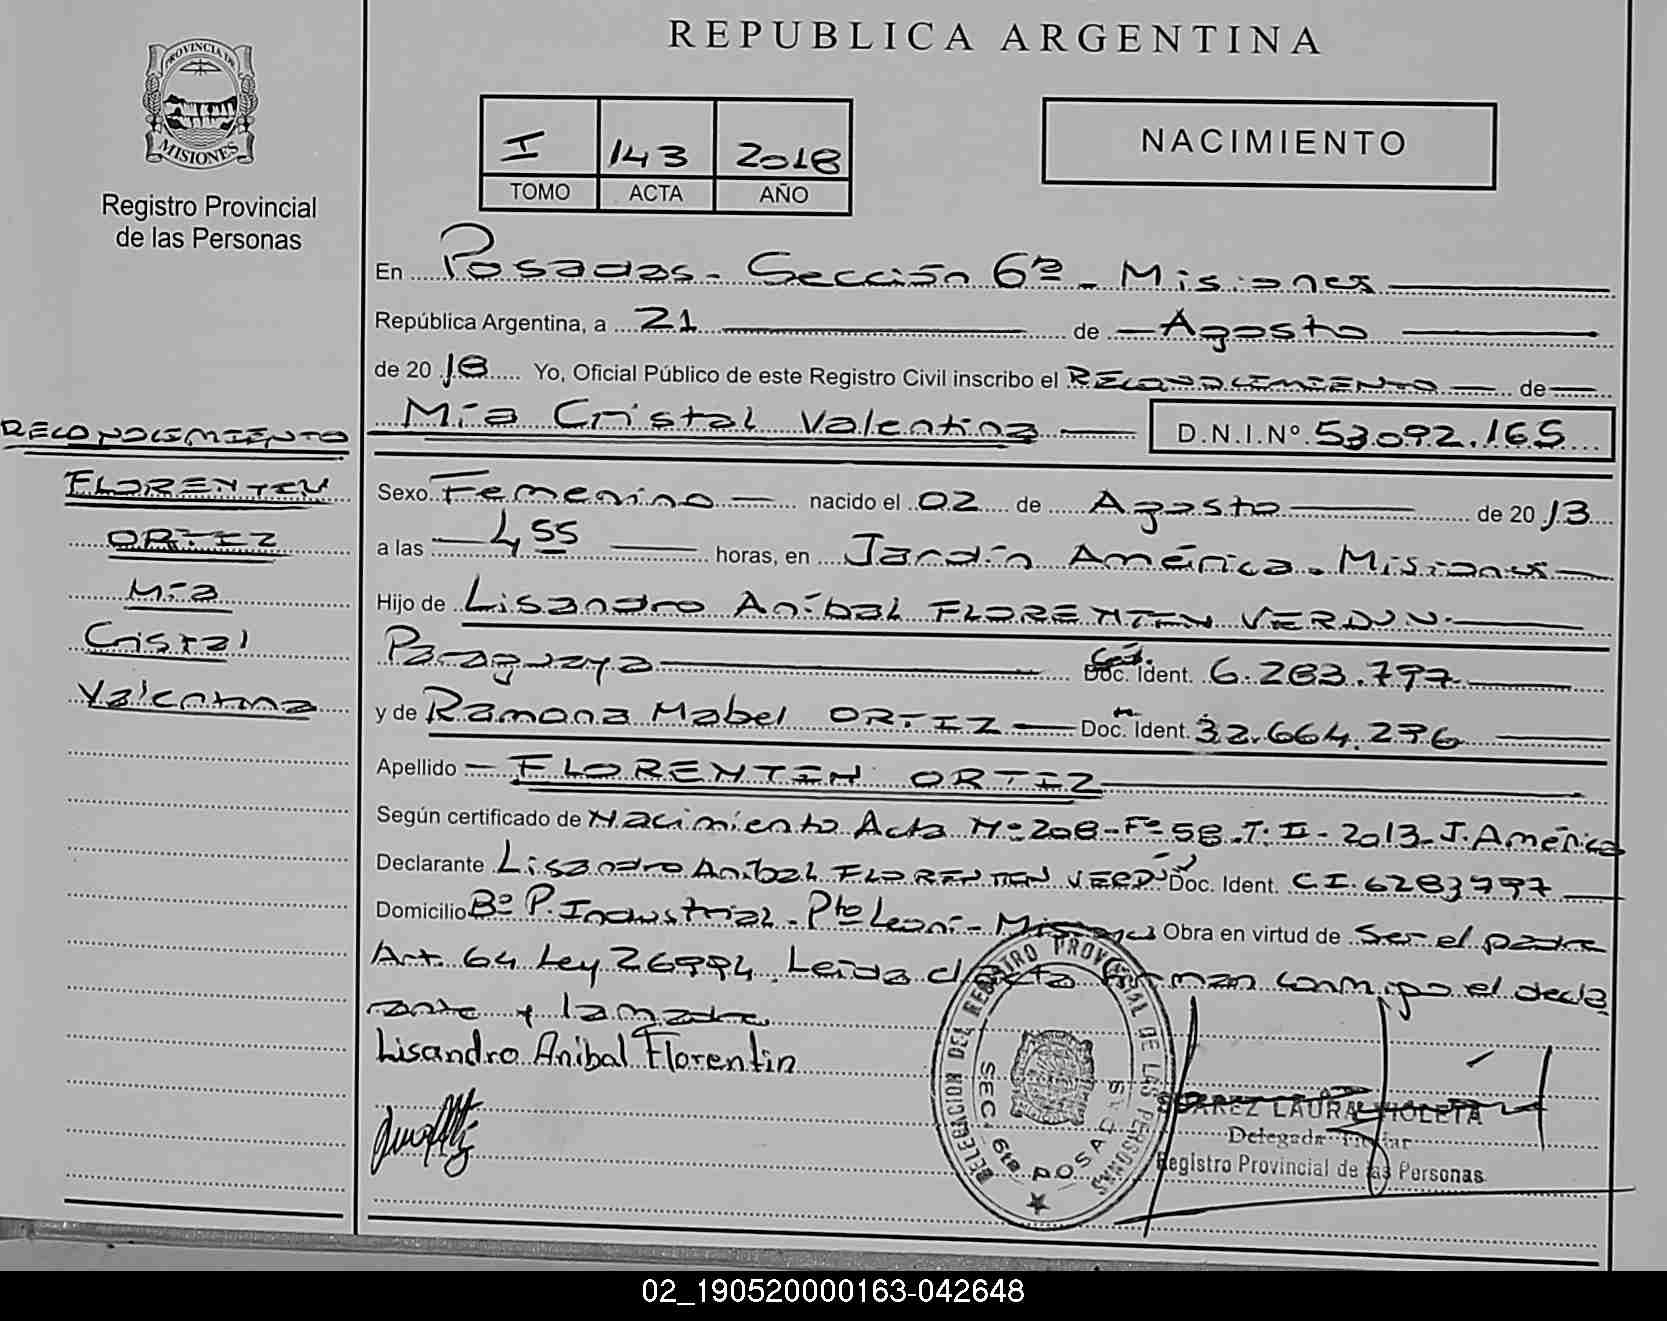 REPUBLICA ARGENTINA
PROVINCIA DE
MISIONES
Registro Provincial
de las Personas
I 143 2018
TOMO ACTA AÑO
NACIMIENTO
En Posadas - Sección 6ª - Misiones
República Argentina, a 21 de Agosto
de 2018 Yo, Oficial Público de este Registro Civil inscribo el RECONOCIMIENTO de
Mía Cristal Valentina D.N.I.Nº 53.092.165
Sexo Femenino nacido el 02 de Agosto de 2013
a las 4,55 horas, en Jardín América. Misiones
Hijo de Lisandro Aníbal FLORENTIN VERDUN
Paraguaya Doc. Ident. 6.283.797
y de Ramona Mabel ORTIZ Doc. Ident. 32.664.276
Apellido FLORENTIN ORTIZ
Según certificado de Nacimiento Acta Nº 208 - Fº 58 - T: II - 2013 - J. América
Declarante Lisandro Aníbal FLORENTIN VERDÚN Doc. Ident. C.I. 6283797
Domicilio Bº P. Industrial - Pto Leoni - Misiones Obra en virtud de Ser el padre
Art. 64 Ley 26994. Leida el acta firman conmigo el decla
rante y la madre
Lisandro Anibal Florentin
RECONOCIMIENTO
FLORENTEN
ORTIZ
Mía
Cristal
Valentina
DELEGACION DEL REGISTRO PROVINCIAL DE LAS PERSONAS
SEC. 6ta POSADAS
SUAREZ LAURA VIOLETA
Delegada Titular
Registro Provincial de las Personas
02_190520000163-042648